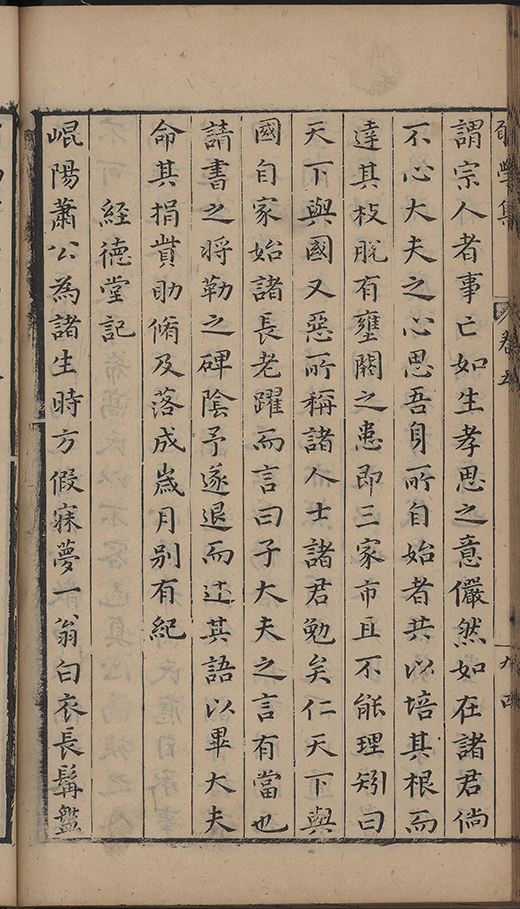 謂宗人者事亡如生孝思之意儼然如在諸君倘
不心大夫之心思吾身所自始者共以培其根而
達其枝脫有壅閼之患即三家市且不能理矧曰
天下與國又惡所稱諸人士諸君勉矣仁天下與
國自家始諸長老躍而言曰子大夫之言有當也
請書之將勒之碑陰予遂退而述其語以畢大夫
命其捐貲助脩及落成歲月别有紀
經德堂記
崐陽蕭公為諸生時方假寐夢一翁白衣長髯盤